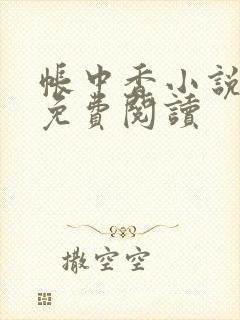 帳中香小說
免費閱讀
撒空空